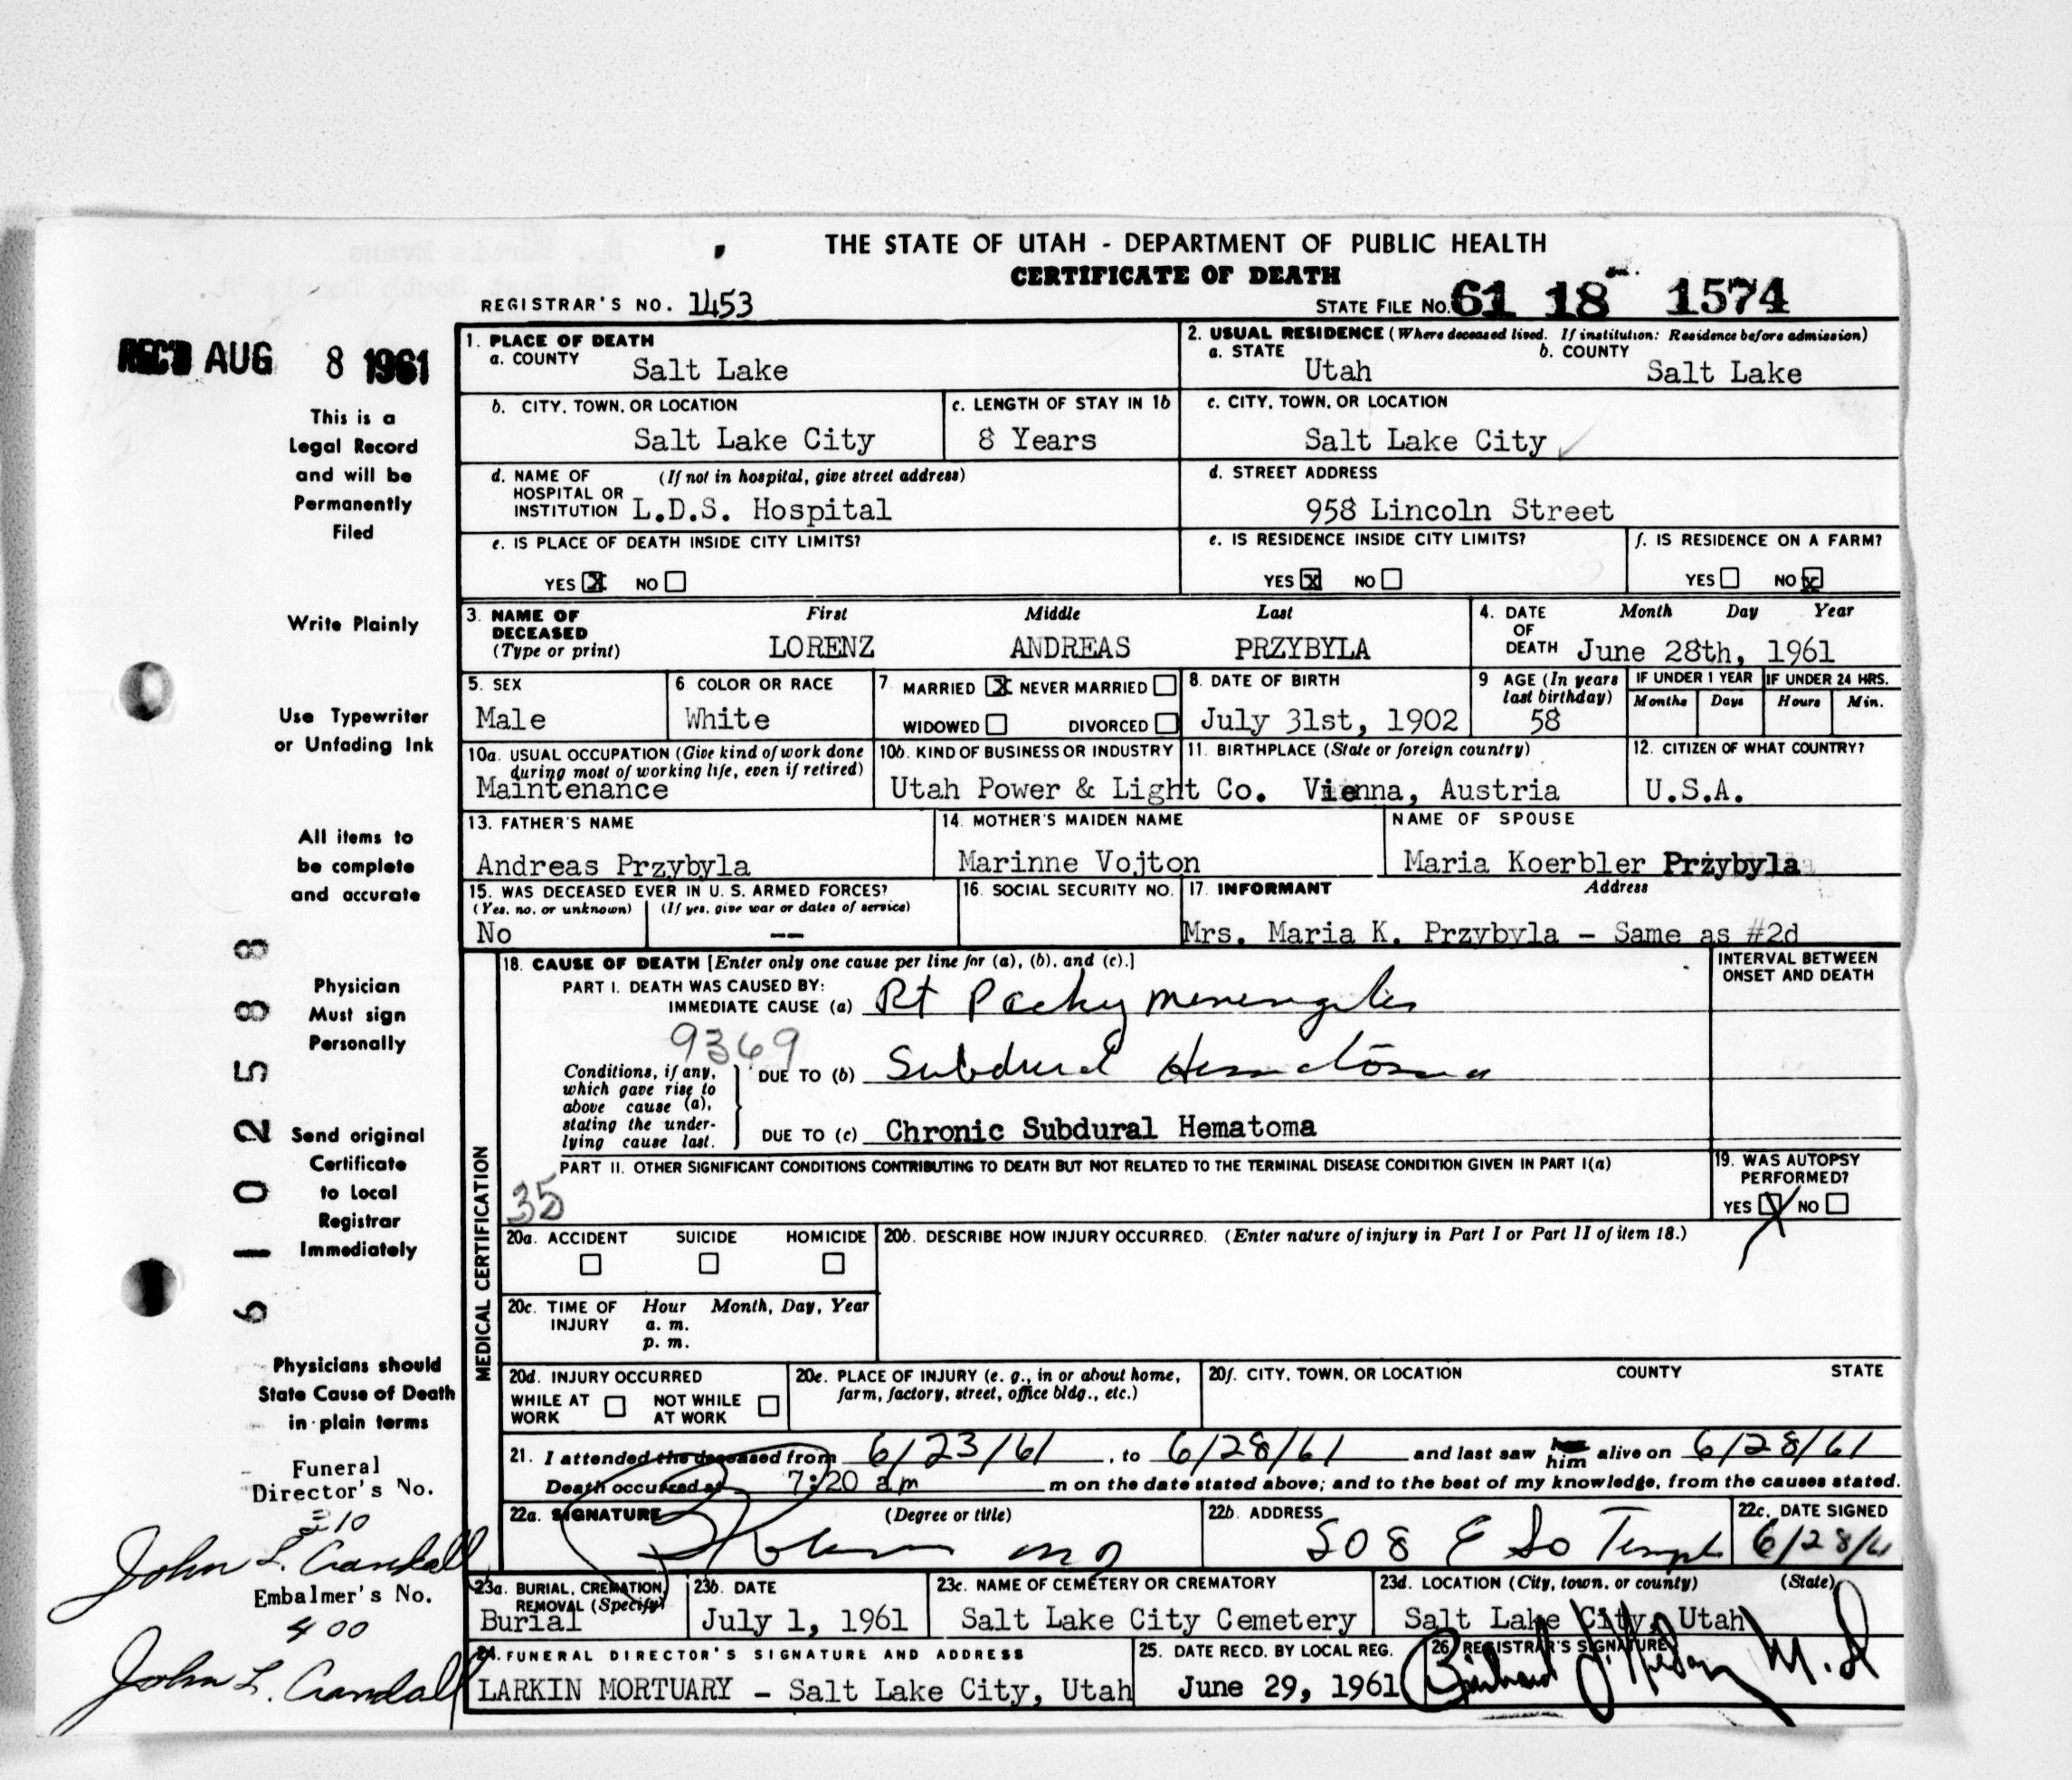 THE STATE OF UTAH - DEPARTMENT OF PUBLIC HEALTH
CERTIFICATE OF DEATH
REGISTRAR'S NO. 1453
STATE FILE NO. 61 18 1574
REC'D AUG 8 1961
This is a
Legal Record
and will be
Permanently
Filed
Write Plainly
Use Typewriter
or Unfading Ink
All items to
be complete
and accurate
Physician
Must sign
Personally
Send original
Certificate
to Local
Registrar
Immediately
Physicians should
State Cause of Death
in plain terms
Funeral
Director's No.
210
John L. Crandall
Embalmer's No.
400
John L. Crandall
6102588
1. PLACE OF DEATH
a. COUNTY Salt Lake
2. USUAL RESIDENCE (Where deceased lived. If institution: Residence before admission)
a. STATE Utah b. COUNTY Salt Lake
b. CITY, TOWN, OR LOCATION Salt Lake City
c. LENGTH OF STAY IN 1b 8 Years
c. CITY, TOWN, OR LOCATION Salt Lake City
d. NAME OF HOSPITAL OR INSTITUTION (If not in hospital, give street address) L.D.S. Hospital
d. STREET ADDRESS 958 Lincoln Street
e. IS PLACE OF DEATH INSIDE CITY LIMITS?
YES X NO
e. IS RESIDENCE INSIDE CITY LIMITS?
YES X NO
f. IS RESIDENCE ON A FARM?
YES NO X
3. NAME OF DECEASED (Type or print)
First Middle Last
LORENZ ANDREAS PRZYBYLA
4. DATE OF DEATH Month Day Year
June 28th, 1961
5. SEX Male
6 COLOR OR RACE White
7. MARRIED X NEVER MARRIED
WIDOWED DIVORCED
8. DATE OF BIRTH July 31st, 1902
9 AGE (In years last birthday) 58
IF UNDER 1 YEAR Months Days
IF UNDER 24 HRS. Hours Min.
10a. USUAL OCCUPATION (Give kind of work done during most of working life, even if retired)
Maintenance
10b. KIND OF BUSINESS OR INDUSTRY
Utah Power & Light Co.
11. BIRTHPLACE (State or foreign country)
Vienna, Austria
12. CITIZEN OF WHAT COUNTRY?
U.S.A.
13. FATHER'S NAME
Andreas Przybyla
14. MOTHER'S MAIDEN NAME
Marinne Vojton
NAME OF SPOUSE
Maria Koerbler Przybyla
15. WAS DECEASED EVER IN U. S. ARMED FORCES?
(Yes, no, or unknown) (If yes, give war or dates of service)
No --
16. SOCIAL SECURITY NO.
17. INFORMANT Address
Mrs. Maria K. Przybyla - Same as #2d
MEDICAL CERTIFICATION
18. CAUSE OF DEATH [Enter only one cause per line for (a), (b), and (c).]
INTERVAL BETWEEN ONSET AND DEATH
PART I. DEATH WAS CAUSED BY:
IMMEDIATE CAUSE (a) Rt Pachymeningitis
9369
Conditions, if any, which gave rise to above cause (a), stating the underlying cause last.
DUE TO (b) Subdural Hematoma
DUE TO (c) Chronic Subdural Hematoma
PART II. OTHER SIGNIFICANT CONDITIONS CONTRIBUTING TO DEATH BUT NOT RELATED TO THE TERMINAL DISEASE CONDITION GIVEN IN PART I(a)
35
19. WAS AUTOPSY PERFORMED?
YES X NO
20a. ACCIDENT SUICIDE HOMICIDE
20b. DESCRIBE HOW INJURY OCCURRED. (Enter nature of injury in Part I or Part II of item 18.)
20c. TIME OF INJURY Hour Month, Day, Year
a. m.
p. m.
20d. INJURY OCCURRED
WHILE AT WORK NOT WHILE AT WORK
20e. PLACE OF INJURY (e. g., in or about home, farm, factory, street, office bldg., etc.)
20f. CITY, TOWN, OR LOCATION COUNTY STATE
21. I attended the deceased from 6/23/61, to 6/28/61 and last saw her him alive on 6/28/61
Death occurred at 7:20 am m on the date stated above; and to the best of my knowledge, from the causes stated.
22a. SIGNATURE (Degree or title)
MD
22b. ADDRESS
508 E So Temple
22c. DATE SIGNED
6/28/61
23a. BURIAL, CREMATION, REMOVAL (Specify)
Burial
23b. DATE
July 1, 1961
23c. NAME OF CEMETERY OR CREMATORY
Salt Lake City Cemetery
23d. LOCATION (City, town, or county) (State)
Salt Lake City, Utah
24. FUNERAL DIRECTOR'S SIGNATURE AND ADDRESS
LARKIN MORTUARY - Salt Lake City, Utah
25. DATE RECD. BY LOCAL REG.
June 29, 1961
26 REGISTRAR'S SIGNATURE
M.D